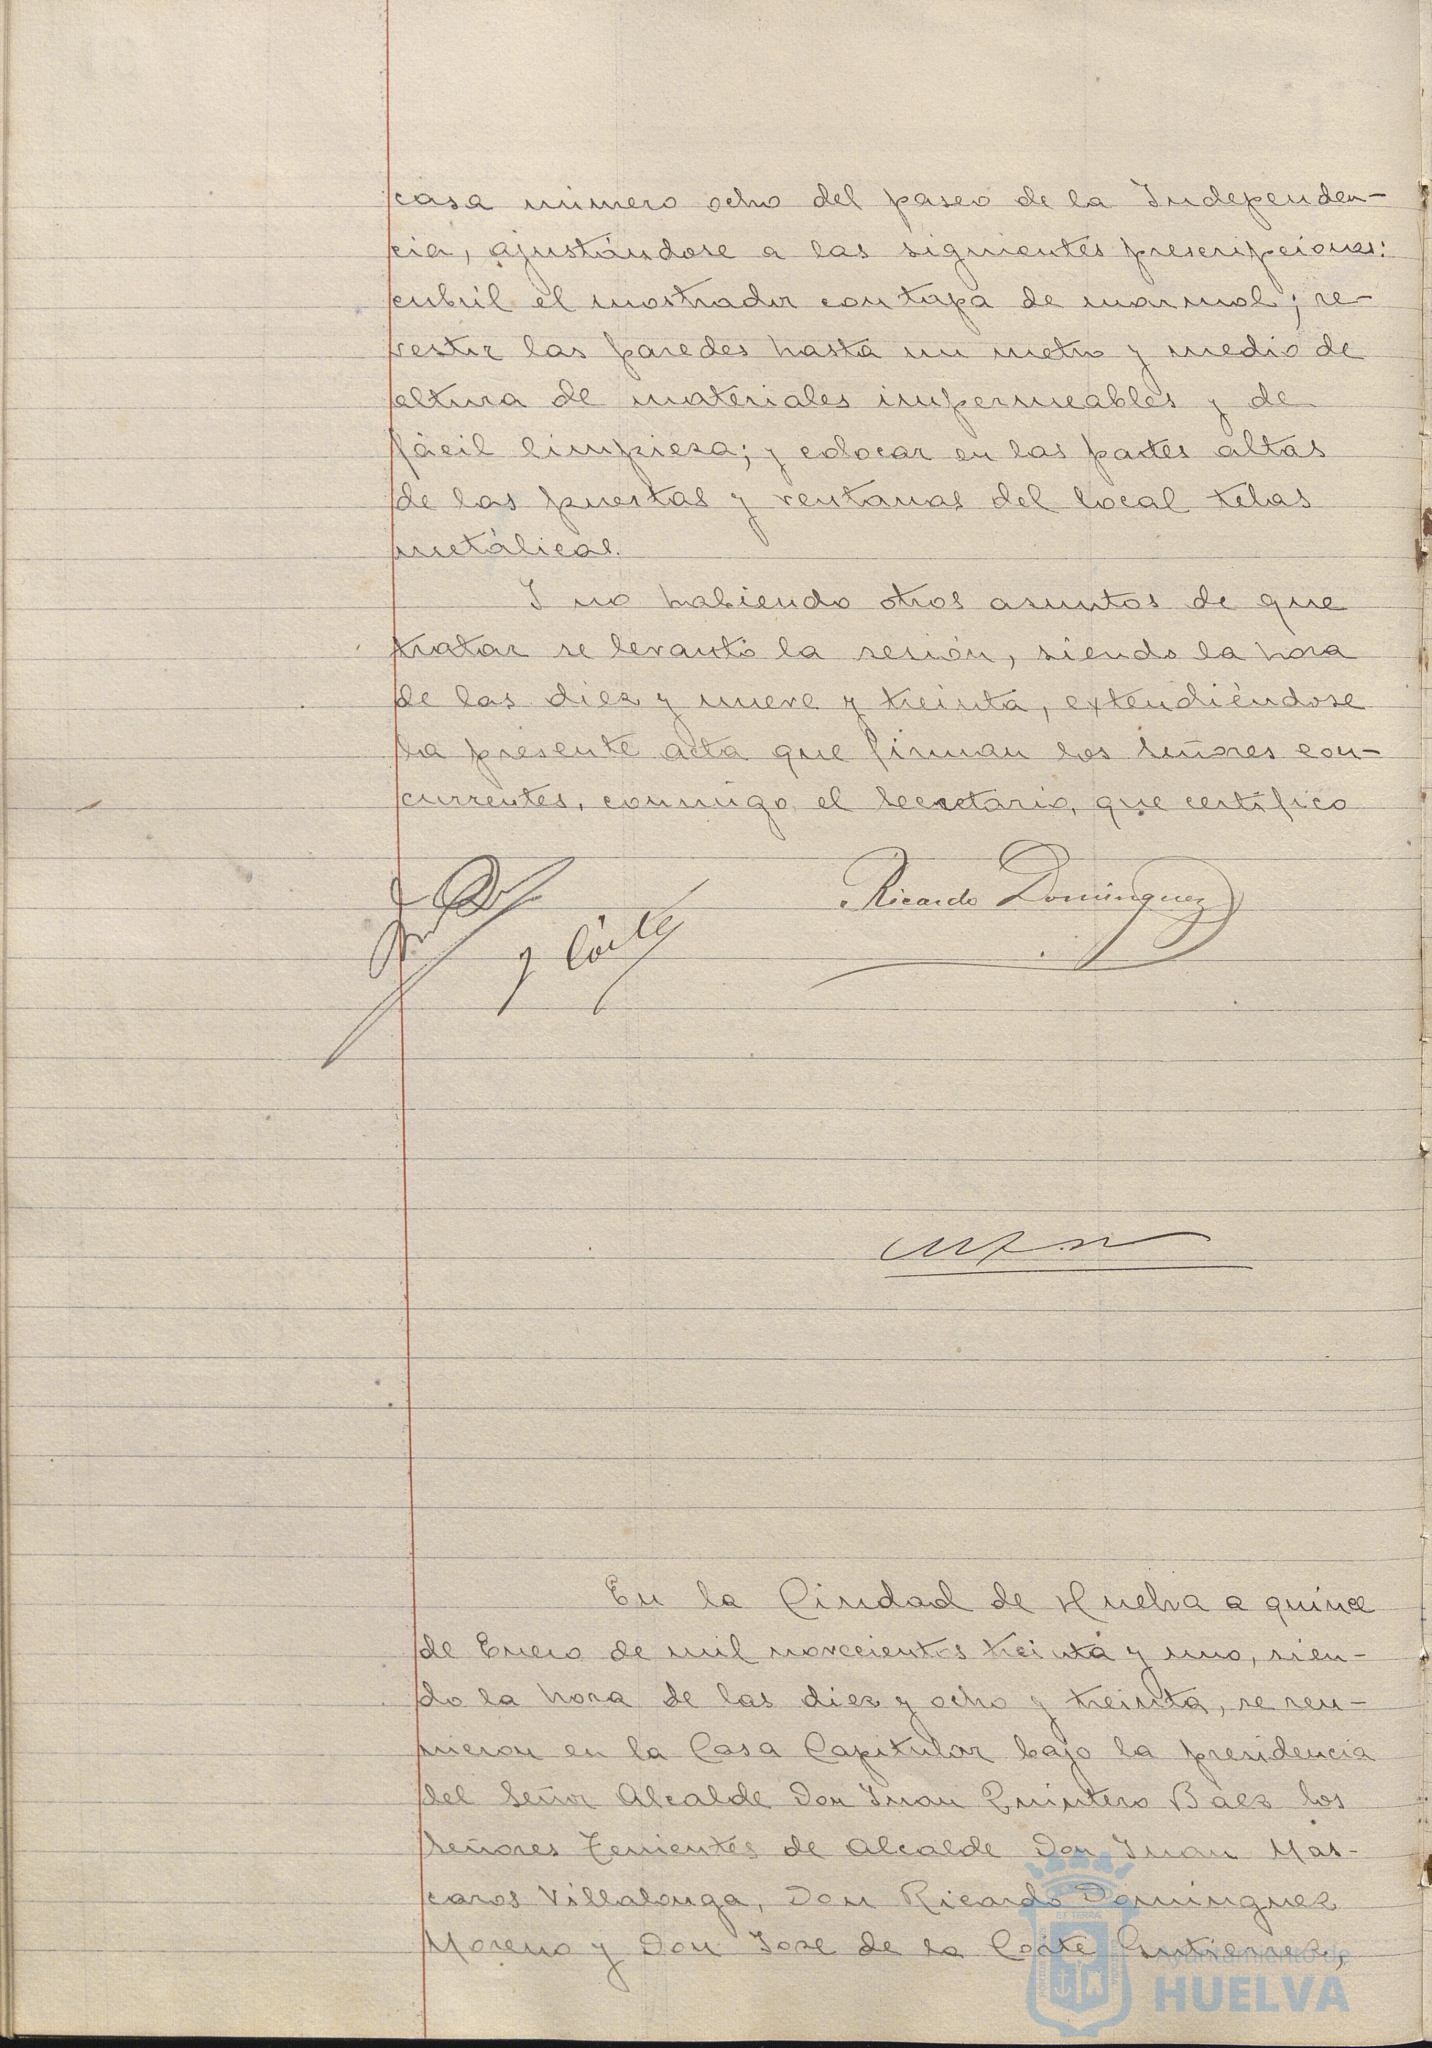 casa número ocho del paseo de la Independen-
cia, ajustándose a las siguientes prescripciones:
cubril el mostrador con tapa de marmol; re-
vestir las paredes hasta un metro y medio de
altura de materiales impermeables y de
fácil limpieza; y colocar en las partes altas
de las puertas y ventanas del local telas
metálicas.
Y no habiendo otros asuntos de que
tratar se levantó la sesión, siendo la hora
de las diez y nueve y treinta, extendiéndose
la presente acta que firman los señores con-
currentes, conmigo, el Secretario, que certifico
Ricardo Dominguez
J Corte
En la Ciudad de Huelva a quince
de Enero de mil novecientos treinta y uno, sien-
do la hora de las diez y ocho y treinta, se reu-
nieron en la Casa Capitular bajo la presidencia
del Señor Alcalde Don Juan Quintero Báez los
señores Tenientes de Alcalde Don Juan Mas-
caros Villalonga, Don Ricardo Dominguez
Moreno y Don Jose de la Corte Gutierrez,
Ayuntamiento de
HUELVA